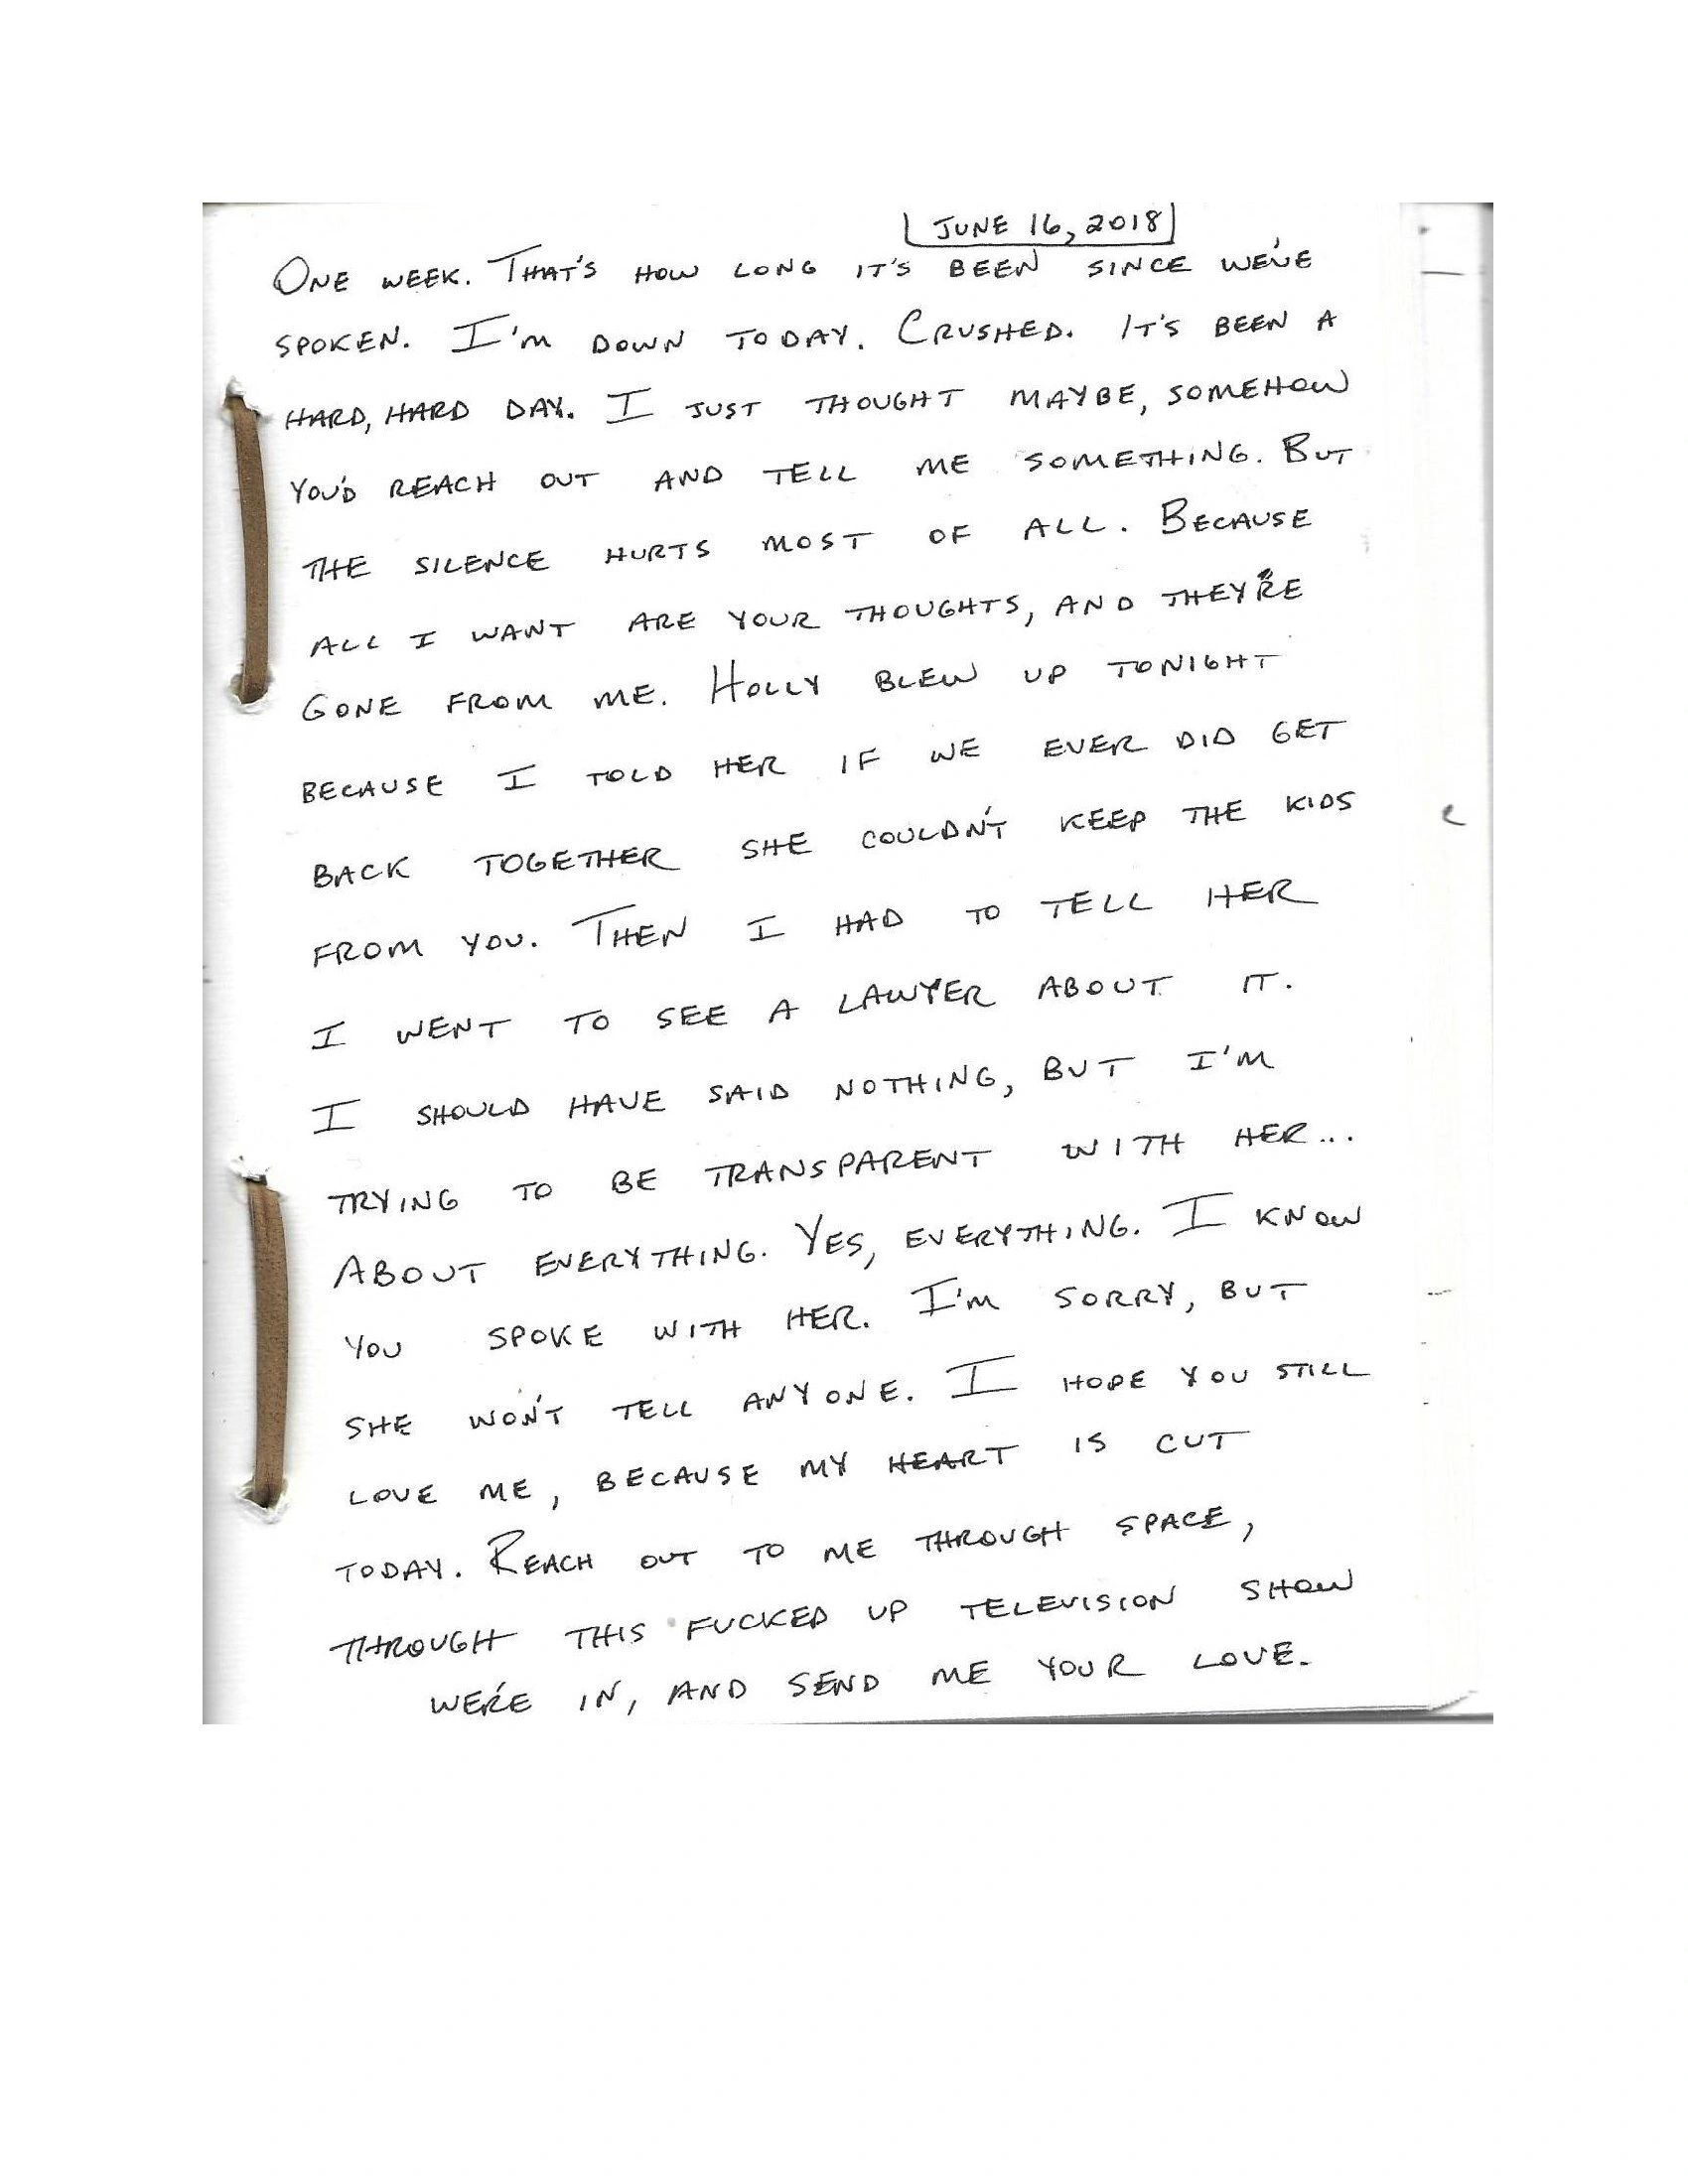 JUNE 16, 2018
ONE WEEK. THAT'S HOW LONG IT'S BEEN SINCE WE'VE
SPOKEN. I'M DOWN TODAY. CRUSHED. IT'S BEEN A
HARD, HARD DAY. I JUST THOUGHT MAYBE, SOMEHOW
YOU'D REACH OUT AND TELL ME SOMETHING. BUT
THE SILENCE HURTS MOST OF ALL. BECAUSE
ALL I WANT ARE YOUR THOUGHTS, AND THEY'RE
GONE FROM ME. HOLLY BLEW UP TONIGHT
BECAUSE I TOLD HER IF WE EVER DID GET
BACK TOGETHER SHE COULDN'T KEEP THE KIDS
FROM YOU. THEN I HAD TO TELL HER
I WENT TO SEE A LAWYER ABOUT IT.
I SHOULD HAVE SAID NOTHING, BUT I'M
TRYING TO BE TRANSPARENT WITH HER...
ABOUT EVERYTHING. YES, EVERYTHING. I KNOW
YOU SPOKE WITH HER. I'M SORRY, BUT
SHE WON'T TELL ANYONE. I HOPE YOU STILL
LOVE ME, BECAUSE MY HEART IS CUT
TODAY. REACH OUT TO ME THROUGH SPACE,
THROUGH THIS FUCKED UP TELEVISION SHOW
WE'RE IN, AND SEND ME YOUR LOVE.